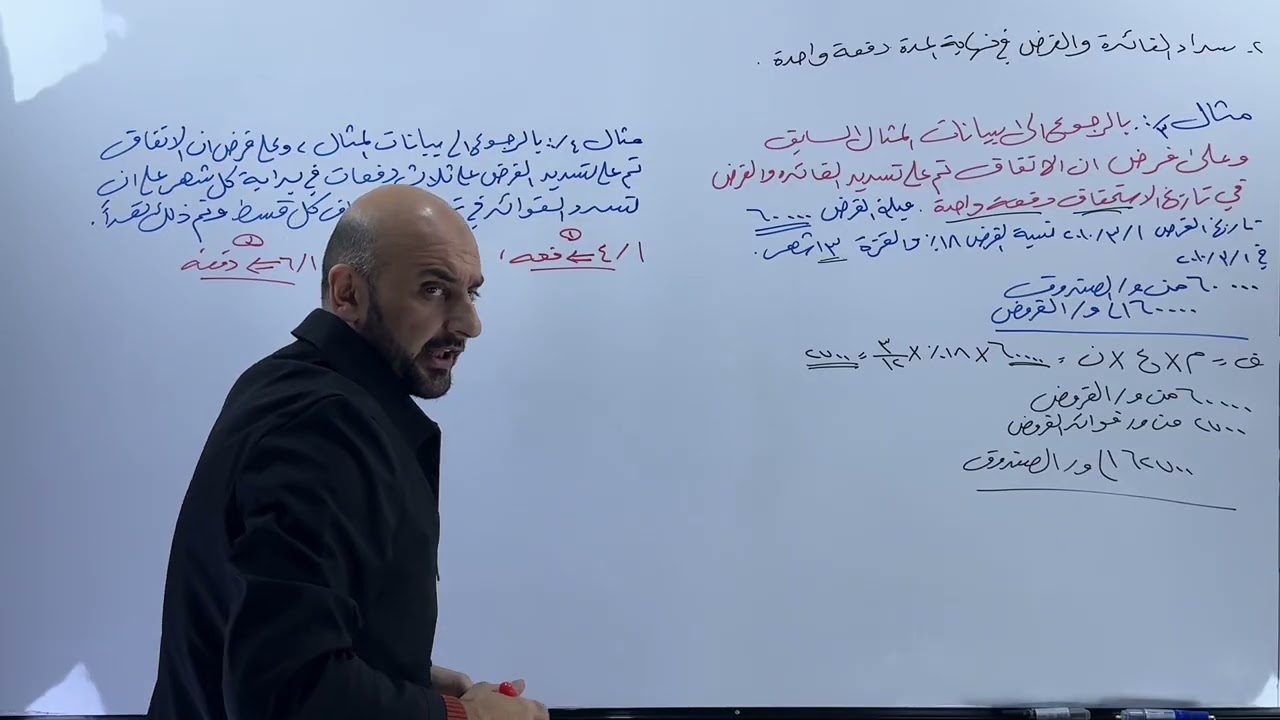 ٢- سداد الفائدة والقرض في نهاية المدة دفعة واحدة .
مثال ٣/: بالرجوع الى بيانات المثال السابق
وعلى فرض ان الاتفاق تم على تسديد الفائدة والقرض
في تاريخ الاستحقاق دفعة واحدة . مبلغ القرض ٦٠٠٠٠
تاريخ القرض ٢٠١٠/٣/١ نسبة القرض ١٨٪ والفترة ٣ اشهر .
في ٢٠١٠/٣/١
٦٠٠٠٠ من ح/ الصندوق
٦٠٠٠٠ الى ح/ القروض
ف = م × ع × ن = ٦٠٠٠٠ × ١٨٪ × ٣/١٢ = ٢٧٠٠
٦٠٠٠٠ من ح/ القروض
٢٧٠٠ من ح/ فوائد القروض
٦٢٧٠٠ الى ح/ الصندوق
مثال ٤/: بالرجوع الى بيانات المثال ، وعلى فرض ان الاتفاق
تم على تسديد القرض على ثلاث دفعات في بداية كل شهر على ان
تسدد الفوائد في كل قسط وتم ذلك نقداً .
٤/١ ⇐ دفعة ١
٦/١ ⇐ دفعة ٣